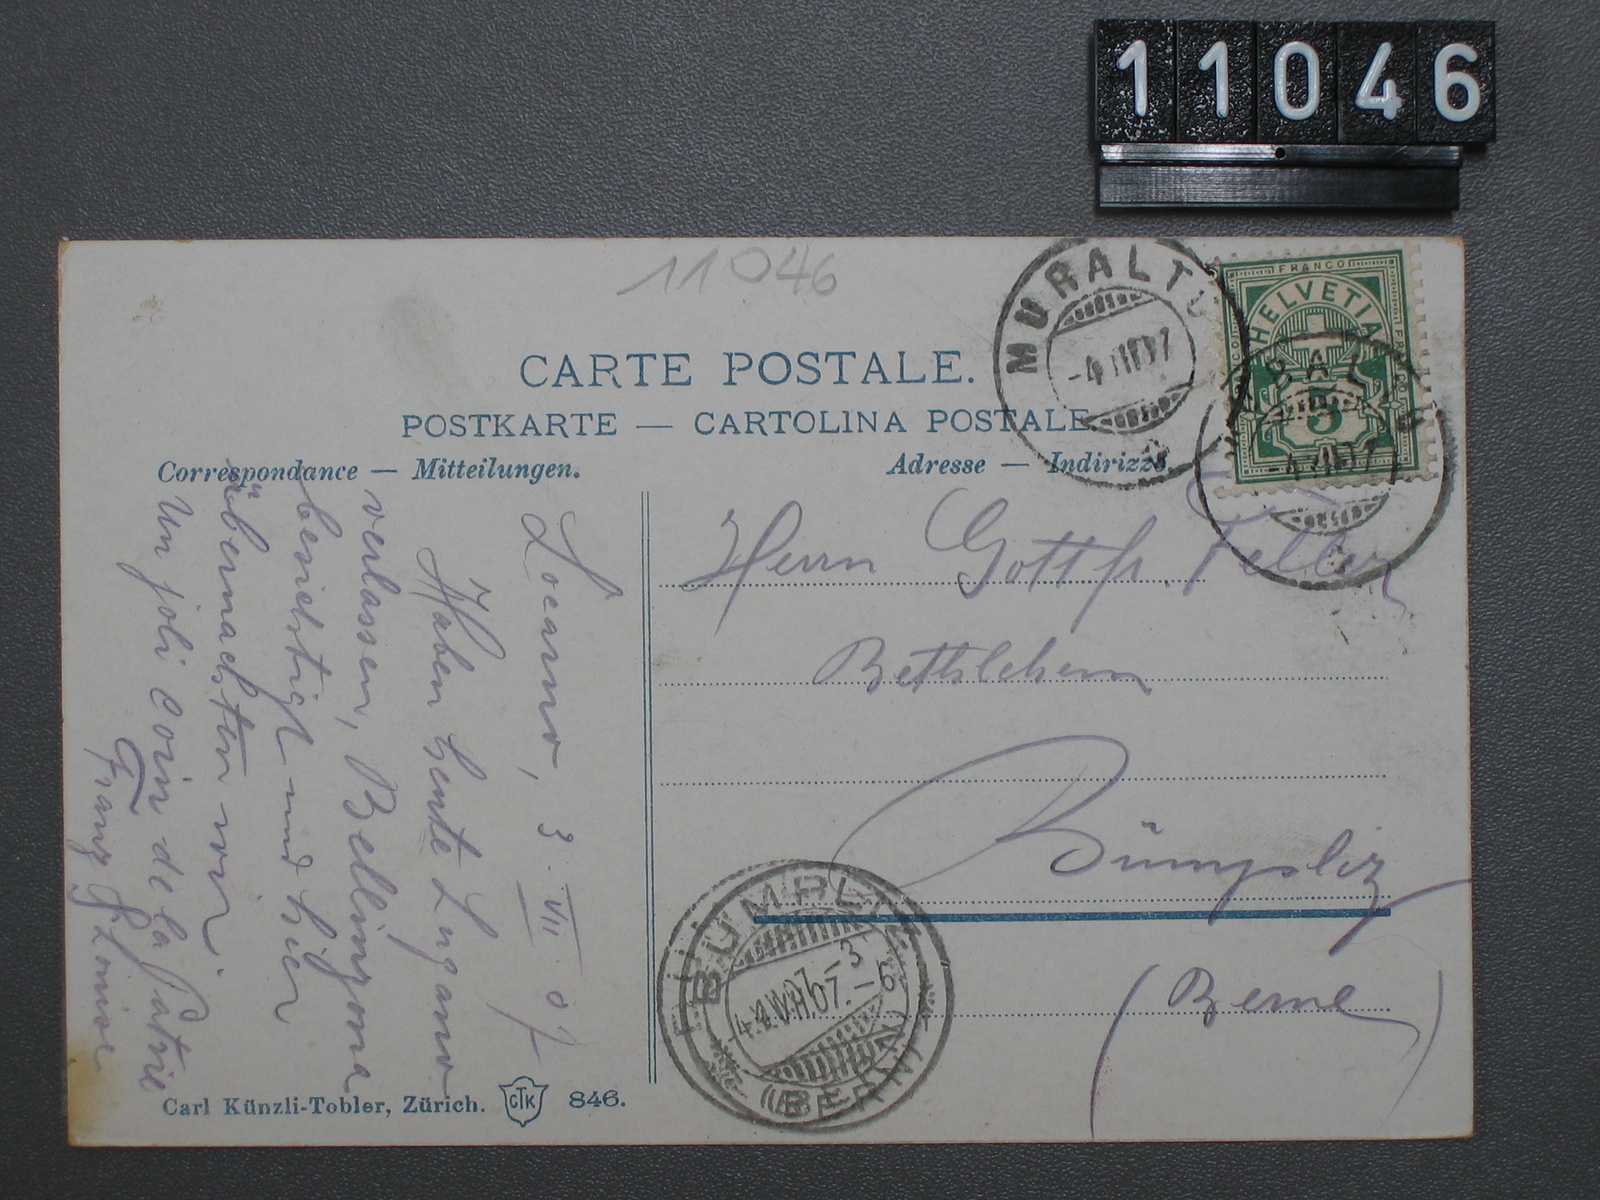 11046
11046
CARTE POSTALE.
POSTKARTE — CARTOLINA POSTALE
Correspondance — Mitteilungen.
Adresse — Indirizzo.
MURALTO
-4 VII 07
FRANCO
HELVETIA
5
MURALTO
-4 VII 07
Locarno, 3. VII 07
Haben heute Lugano
verlassen, Bellinzona
besichtigt und hier
übernachten wir.
Un joli coin de la Patrie
Franz & Louise
Herrn Gottfr. Feller
Bethlehem
Bümpliz
(Berne)
BÜMPLIZ
4.VII.07.-6
(BERN)
Carl Künzli-Tobler, Zürich.
CTK
846.